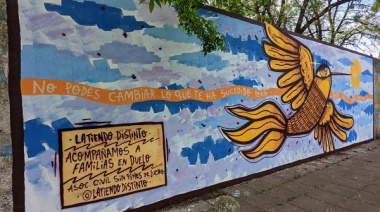 NO PODES CAMBIAR LO QUE TE HA SUCEDIDO
LATIENDO DISTINTO
ACOMPAÑAMOS A
FAMILIAS EN DUELO
ASOC CIVIL SIN FINES DE LUCRO
@LATIENDO DISTINTO